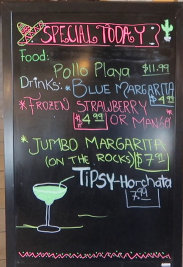 SPECIAL TODAY?
Food:
Pollo Playa $11.99
Drinks: *BLUE MARGARITA
$4.99
*FROZEN STRAWBERRY
$4.99 OR MANGO
*JUMBO MARGARITA
(ON THE ROCKS) $7.91
*TIPSY-Horchata
7.99